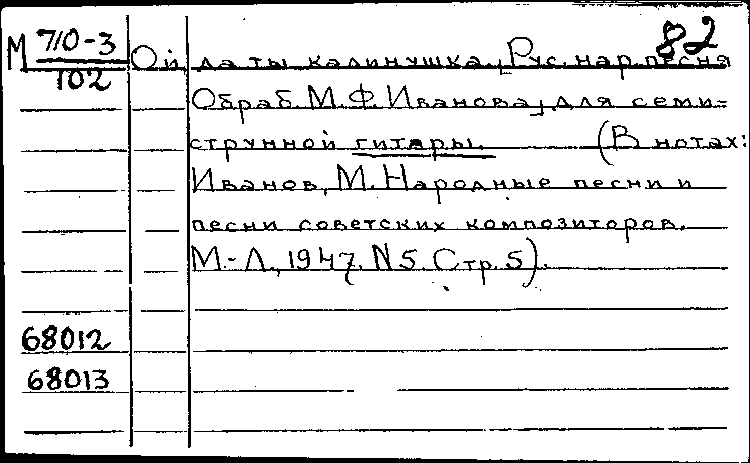 82
М 710-3
102
Ой да ты калинушка. [Рус. нар. песня
Обраб. М.Ф. Иванова], для семи=
струнной гитары. (В нотах:
Иванов, М. Народные песни и
песни советских композиторов.
М.-Л., 1947. N5. Стр. 5).
68012
68013